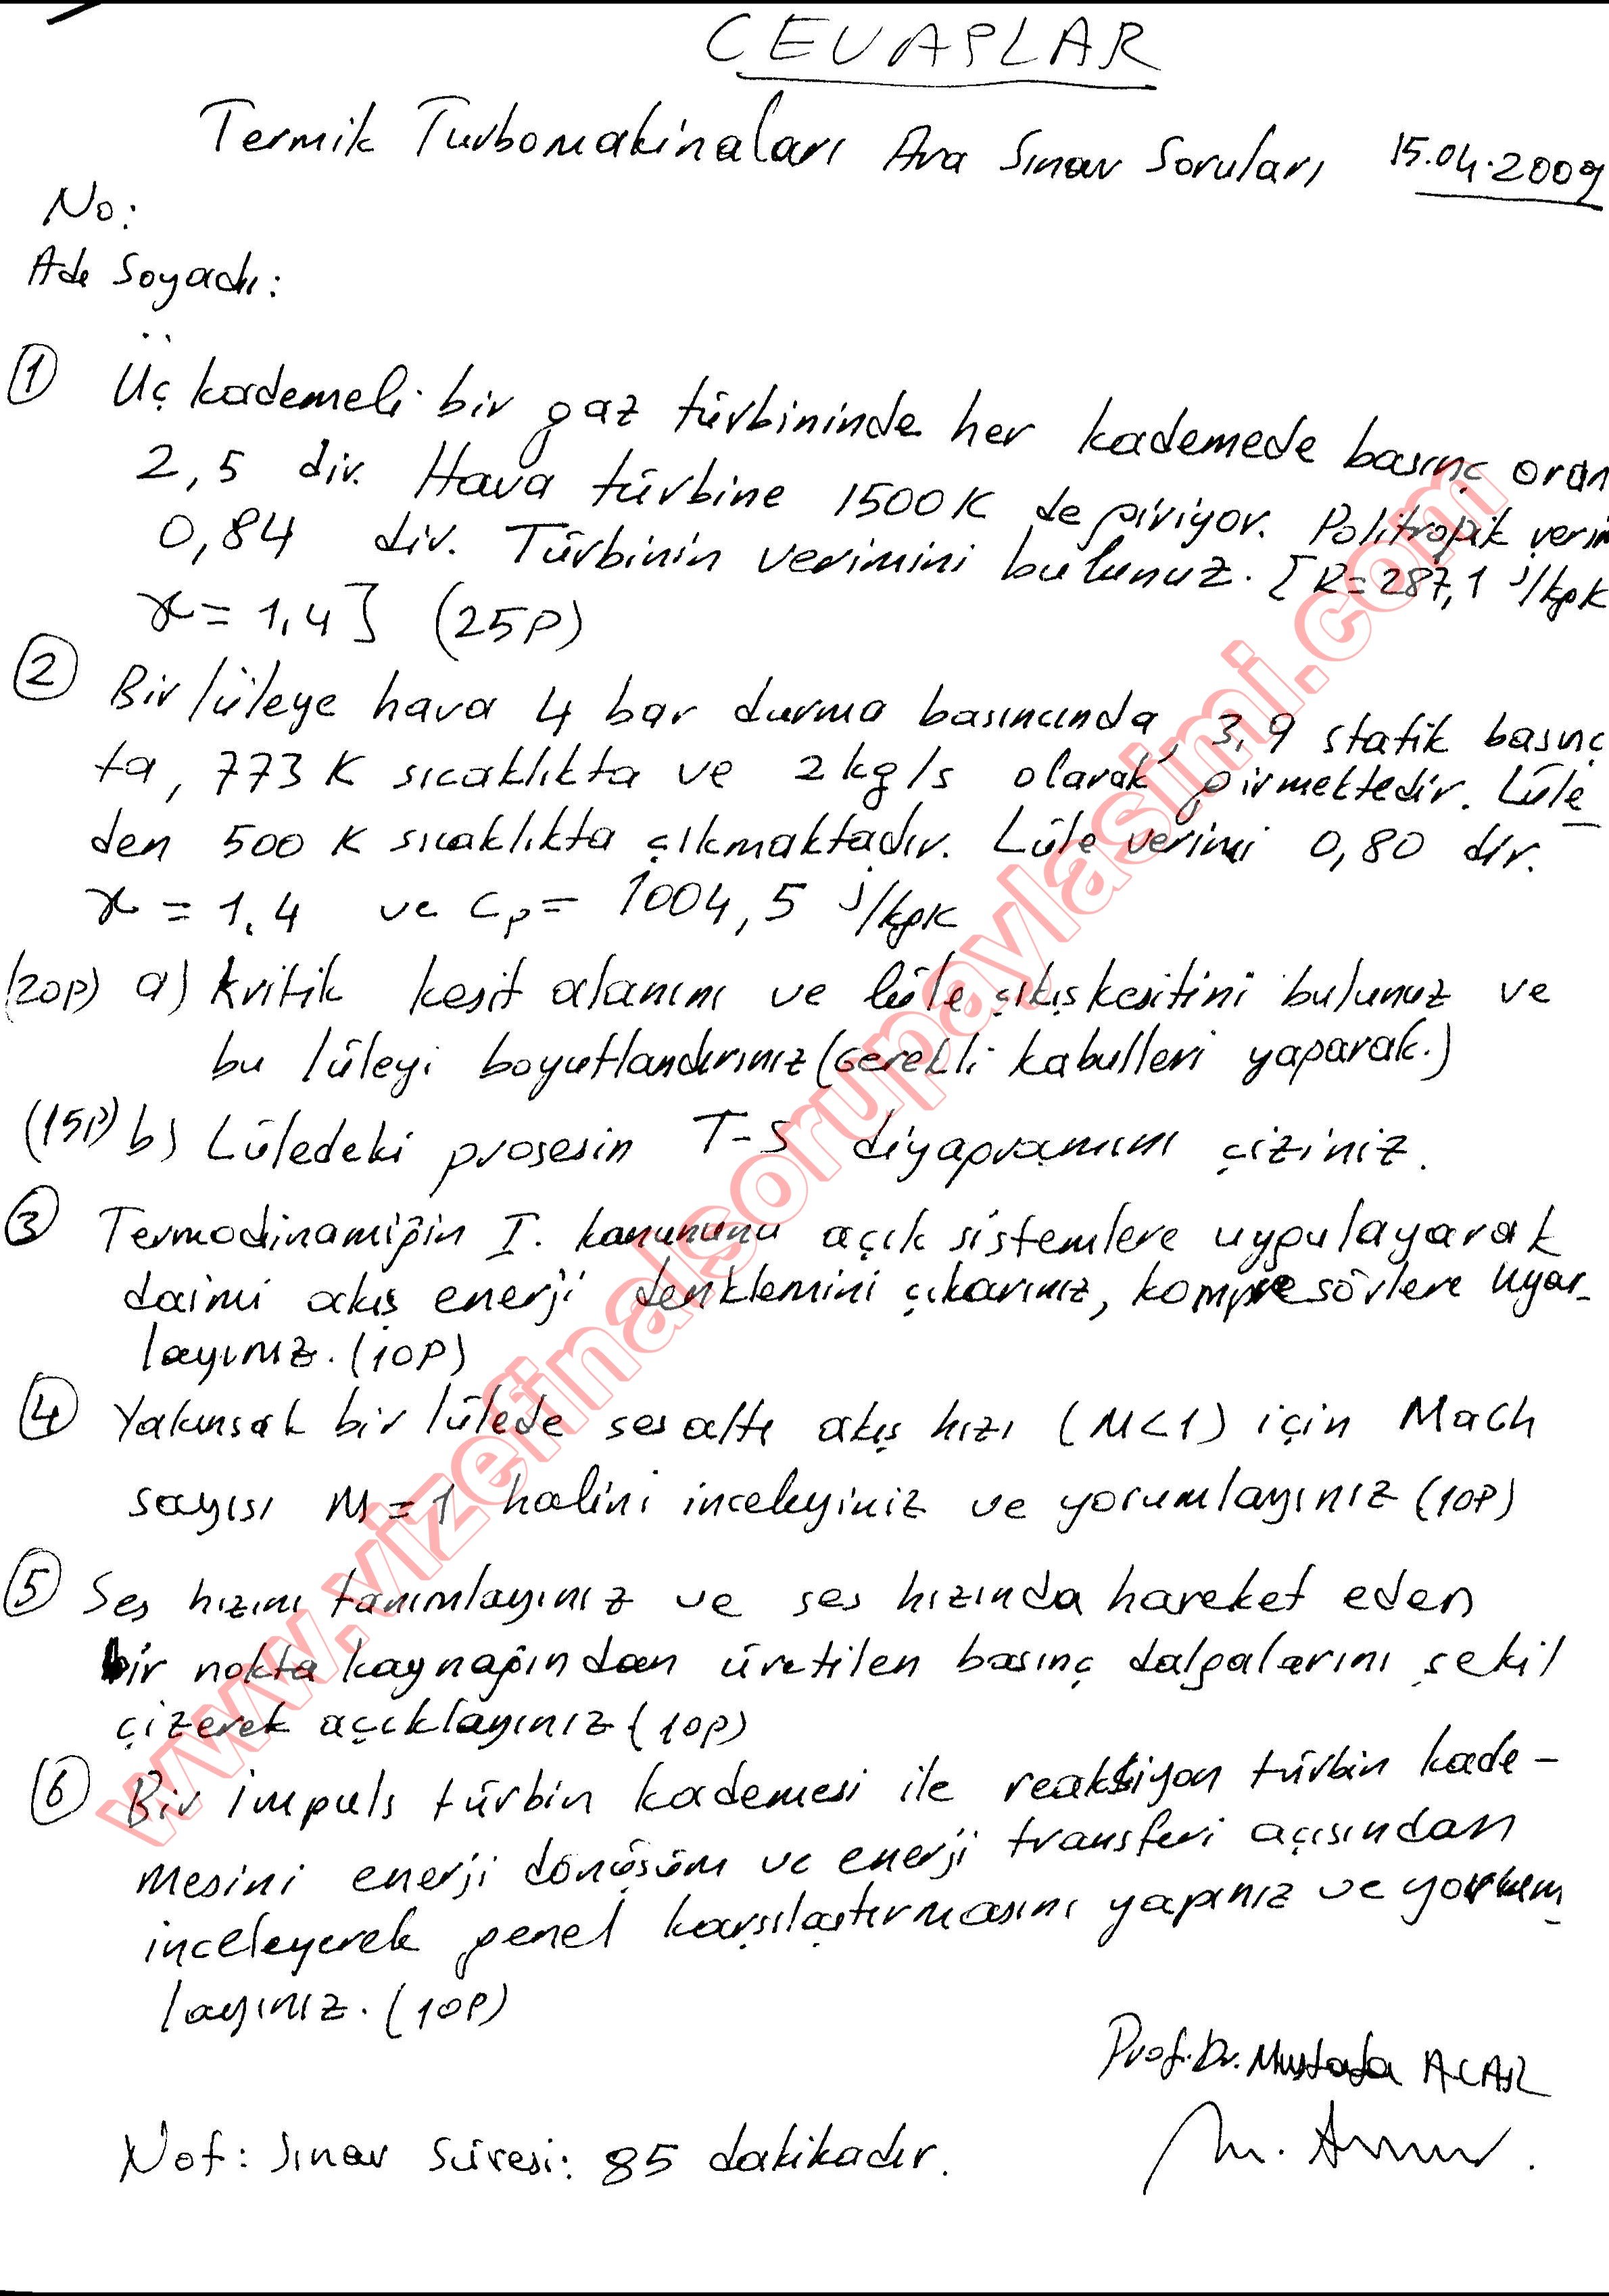 CEVAPLAR
Termik Turbomakinaları Ara Sınav Soruları 15.04.2009
No:
Adı Soyadı:
① Üç kademeli bir gaz türbininde her kademede basınç oran
2,5 dir. Hava türbine 1500K de giriyor. Politropik verim
0,84 dir. Türbinin verimini bulunuz. [R=287,1 J/kgK
ϰ=1,4] (25P)
② Bir lüleye hava 4 bar durma basıncında, 3,9 statik basınç
ta, 773 K sıcaklıkta ve 2kg/s olarak girmektedir. Lüle
den 500 K sıcaklıkta çıkmaktadır. Lüle verimi 0,80 dır.
ϰ = 1,4 ve cp= 1004,5 J/kgK
(20P) a) Kritik kesit alanını ve lüle çıkış kesitini bulunuz ve
bu lüleyi boyutlandırınız (Gerekli kabulleri yaparak.)
(15P) b) Lüledeki prosesin T-S diyagramını çiziniz.
③ Termodinamiğin I. kanununu açık sistemlere uygulayarak
daimi akış enerji denklemini çıkarınız, kompresörlere uyar-
layınız. (10P)
④ Yakınsak bir lülede ses altı akış hızı (M<1) için Mach
sayısı M=1 halini inceleyiniz ve yorumlayınız (10P)
⑤ Ses hızını tanımlayınız ve ses hızında hareket eden
bir nokta kaynağından üretilen basınç dalgalarını şekil
çizerek açıklayınız (10P)
⑥ Bir İmpuls türbin kademesi ile reaksiyon türbin kade-
mesini enerji dönüşüm ve enerji transferi açısından
inceleyerek genel karşılaştırmasını yapınız ve yorum-
layınız. (10P)
Prof. Dr. Mustafa ACAR
M. Acar.
Not: Sınav Süresi: 85 dakikadır.
www.vizefinalsorupaylasimi.com